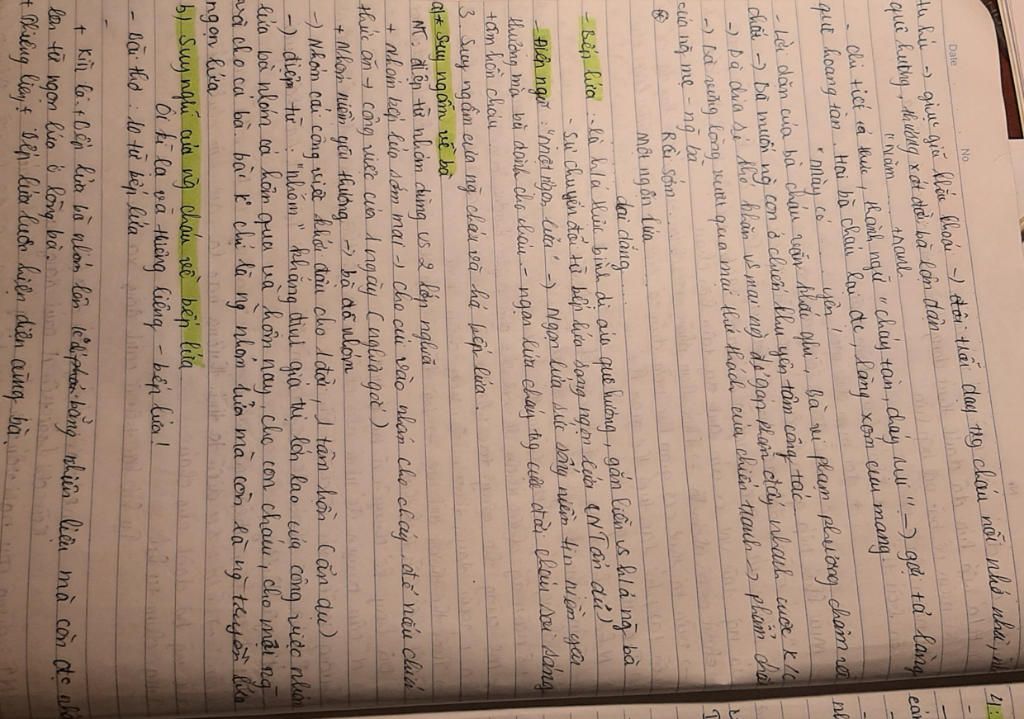 Date No
tu hú -> giục giã khắc khoải -> đôi thổi day trg cháu nỗi nhớ nhà,
quê hương, thương xót đời bà lận đận
"Năm ..... tranh
- chi tiết tả thực, thành ngữ "cháy tàn, cháy rụi" -> gợi tả làng
quê hoang tàn. Hai bà cháu lại đc làng xóm cưu mang.
"Mày có ..... yên!"
- Lời dặn của bà cháu vẫn khắc ghi, bà vi phạm phương châm về
chất -> Bà muốn ng con ở chiến khu yên tâm công tác
-> Bà chia sẻ khó khăn vs mọi ng để góp phần đẩy nhanh cuộc k/c
-> Bà vững lòng vượt qua mọi thử thách của chiến tranh -> phẩm chất
của ng mẹ - ng bà
⊛ Rồi sớm .....
Một ngọn lửa
..... dai dẳng .....
- Bếp lửa: là h/a thực bình dị của quê hương, gắn liền vs h/a ng bà
- Sự chuyển đổi từ bếp lửa sang ngọn lửa (NT ẩn dụ)
- Điệp ngữ "một ngọn lửa" -> ngọn lửa sức sống niềm tin niềm yêu
thương mà bà dành cho cháu - ngọn lửa cháy trg cuộc đời cháu soi sáng
tâm hồn cháu
3. Suy ngẫm của ng cháu và h/a bếp lửa.
a)* Suy ngẫm về bà
NT: điệp từ nhóm dùng vs 2 lớp nghĩa
+ nhóm bếp lửa sớm mai -> cho củi vào nhóm cho cháy để nấu chín
thức ăn -> công việc của 1 ngày (nghĩa gốc)
+ Nhóm niềm yêu thương -> bà đã nhóm
-> Nhóm cái công việc khởi đầu cho 1 đời, 1 tâm hồn (ẩn dụ)
-> điệp từ "nhóm" khẳng định giá trị lớn lao của công việc nhóm
lửa bà nhóm cả hôm qua và hôm nay, cho con cháu, cho mọi ng
và cho cả bà bà k chỉ là ng nhóm lửa mà còn là ng truyền lửa
ngọn lửa
b) Suy nghĩ của ng cháu về bếp lửa
Ôi kì lạ và thiêng liêng - bếp lửa!
- Bài thơ: 10 từ bếp lửa
-
+ Kìa là: Bếp lửa bà nhóm lên k phải bằng nhiên liệu mà còn đc
lên từ ngọn lửa ở lòng bà.
+ thiêng liêng: Bếp lửa luôn hiện diện cùng bà